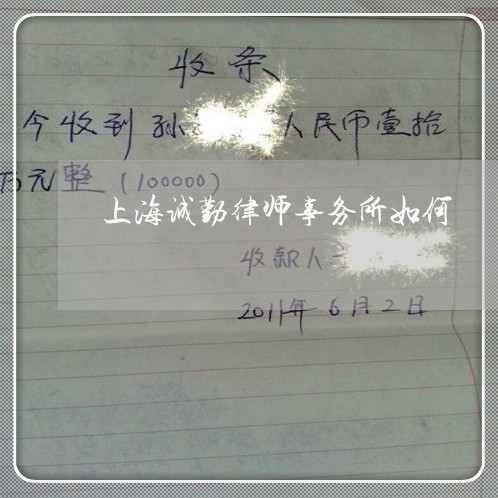 收条
今收到孙 人民币壹拾
万元整（100000）
上海诚勤律师事务所如何
收款人
2011年6月2日